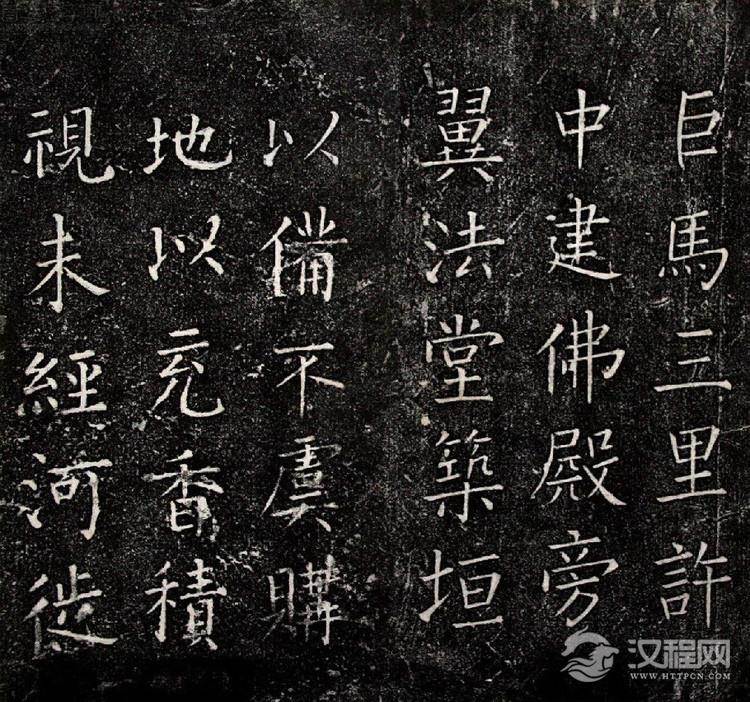 巨馬三里許
中建佛殿旁
翼法堂築垣
以備不虞購
地以充香積
視未經河徙
汉程网
WWW.HTTPCN.COM